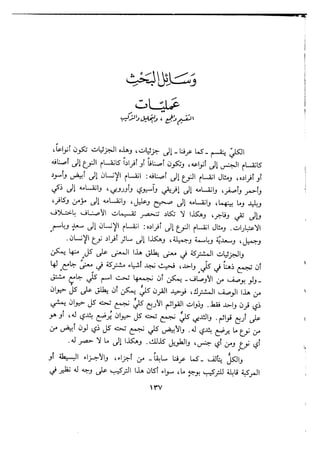 وسائل البحث
عمليات
التقسيم والجمع، والتحليل والتركيب
الكلي ينقسم ـ كما عرفنا ـ إلى جزئيات، وهذه الجزئيات تكون أنواعاً،
كانقسام الجنس إلى أنواعه، وتكون أصنافاً أو أفراداً كانقسام النوع إلى أصنافه
أو أفراده، ومثال انقسام النوع إلى أصنافه: انقسام الإنسان إلى أبيض وأسود
وأحمر وأصفر، وانقسامه إلى إفريقي وآسيوي وأوروبي، وانقسامه إلى ذكي
وبليد وما بينهما، وانقسامه إلى صحيح وعليل، وانقسامه إلى مؤمن وكافر،
وإلى تقي وفاجر، وهكذا لا تكاد تنحصر تقسيمات الأصناف باختلاف
الاعتبارات. ومثال انقسام النوع إلى أفراده: انقسام الإنسان إلى سعد وباسم
وجميل، وسعدية وباسمة وجميلة، وهكذا إلى سائر أفراد نوع الإنسان.
والجزئيات المشتركة في معنى يطلق هذا المعنى على كل منها يمكن
أن تجمع ذهناً في كلي واحد، فحيث نجد أشياء مشتركة في معنى جامع لها
ـ ولو بوصف من الأوصاف ـ يمكن أن نجمعها تحت اسم كلي جامع مشتق
من هذا الوصف المشترك، فوحيد القرن كلي يمكن أن يطلق على كل حيوان
ذي قرن واحد فقط. وذوات القوائم الأربع كلي نجمع تحته كل حيوان يمشي
على أربع قوائم. والثديي كلي نجمع تحته كل حيوان يُرضع بثدي له، أو هو
من نوع ما يرضع بثدي له. والأبيض كلي نجمع تحته كل ذي لون أبيض من
أي نوع ومن أي جنس، والطويل كذلك. وهكذا إلى ما لا حصر له.
والكل يتألف ـ كما عرفنا سابقاً ـ من أجزاء، والأجزاء البسيطة أو
المركبة قابلة للتركيب بوجه ما، سواء أكان هذا التركيب على وجه له نظير في
١٣٧